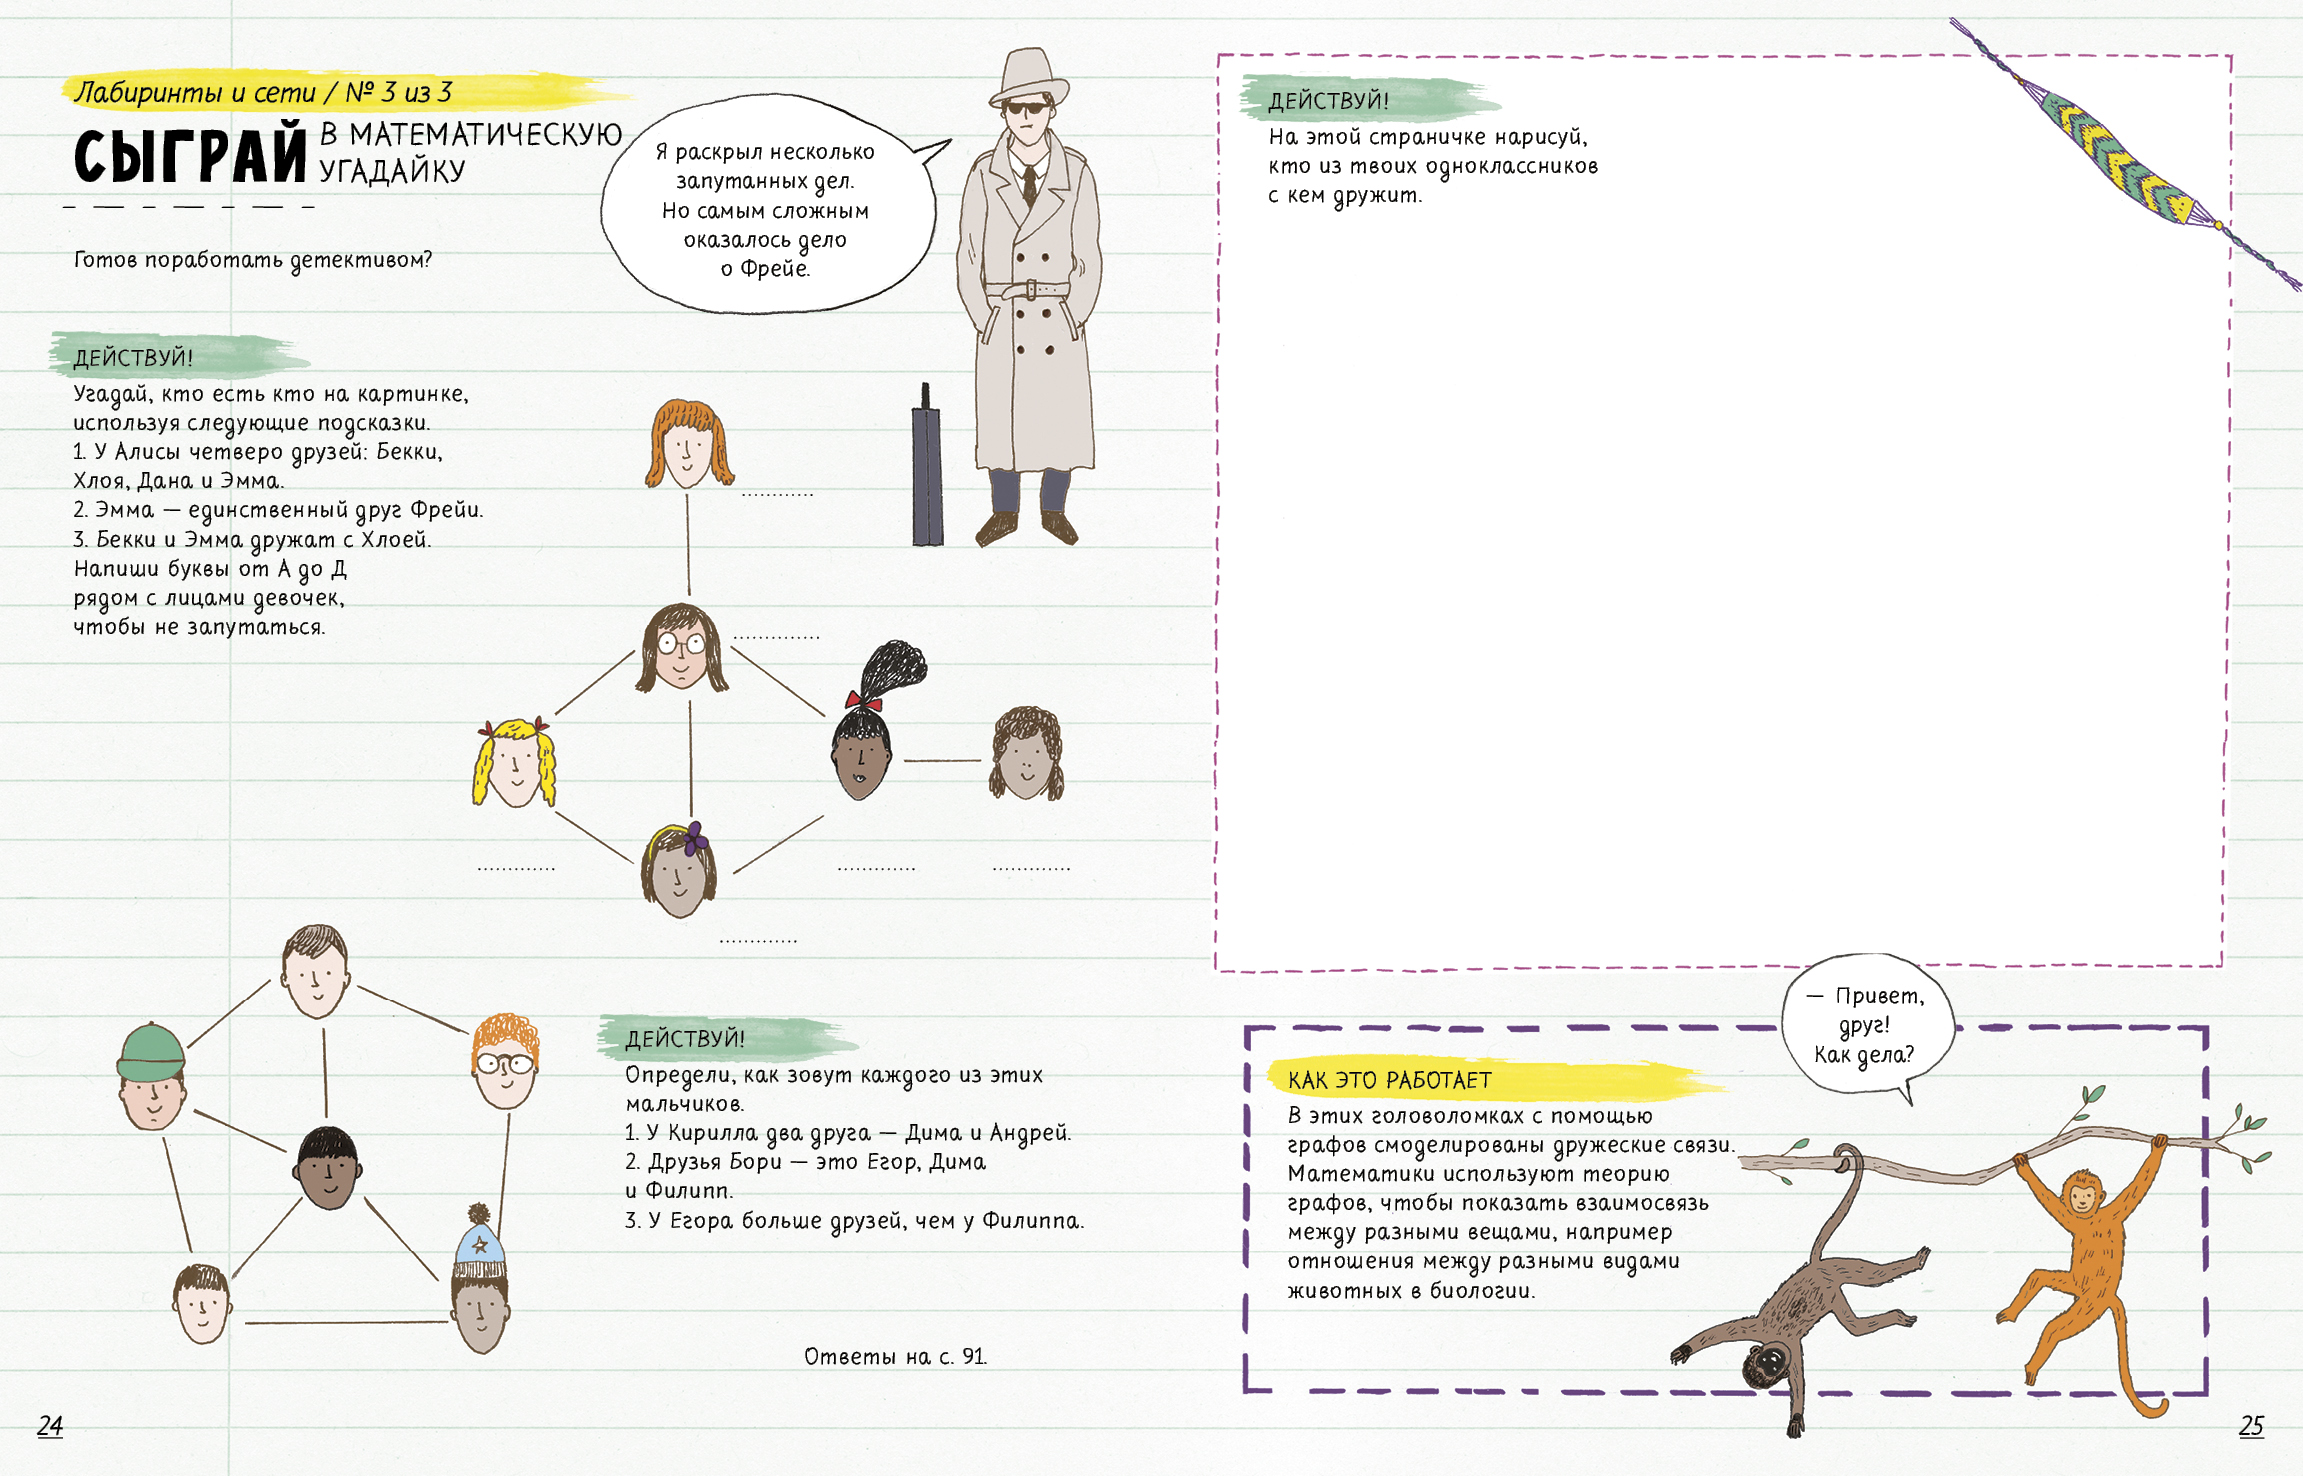 Лабиринты и сети / № 3 из 3
СЫГРАЙ В МАТЕМАТИЧЕСКУЮ
УГАДАЙКУ
Готов поработать детективом?
Я раскрыл несколько
запутанных дел.
Но самым сложным
оказалось дело
о Фрейе.
ДЕЙСТВУЙ!
Угадай, кто есть кто на картинке,
используя следующие подсказки.
1. У Алисы четверо друзей: Бекки,
Хлоя, Дана и Эмма.
2. Эмма — единственный друг Фрейи.
3. Бекки и Эмма дружат с Хлоей.
Напиши буквы от А до Д
рядом с лицами девочек,
чтобы не запутаться.
ДЕЙСТВУЙ!
Определи, как зовут каждого из этих
мальчиков.
1. У Кирилла два друга — Дима и Андрей.
2. Друзья Бори — это Егор, Дима
и Филипп.
3. У Егора больше друзей, чем у Филиппа.
Ответы на с. 91.
24
ДЕЙСТВУЙ!
На этой страничке нарисуй,
кто из твоих одноклассников
с кем дружит.
— Привет,
друг!
Как дела?
КАК ЭТО РАБОТАЕТ
В этих головоломках с помощью
графов смоделированы дружеские связи.
Математики используют теорию
графов, чтобы показать взаимосвязь
между разными вещами, например
отношения между разными видами
животных в биологии.
25